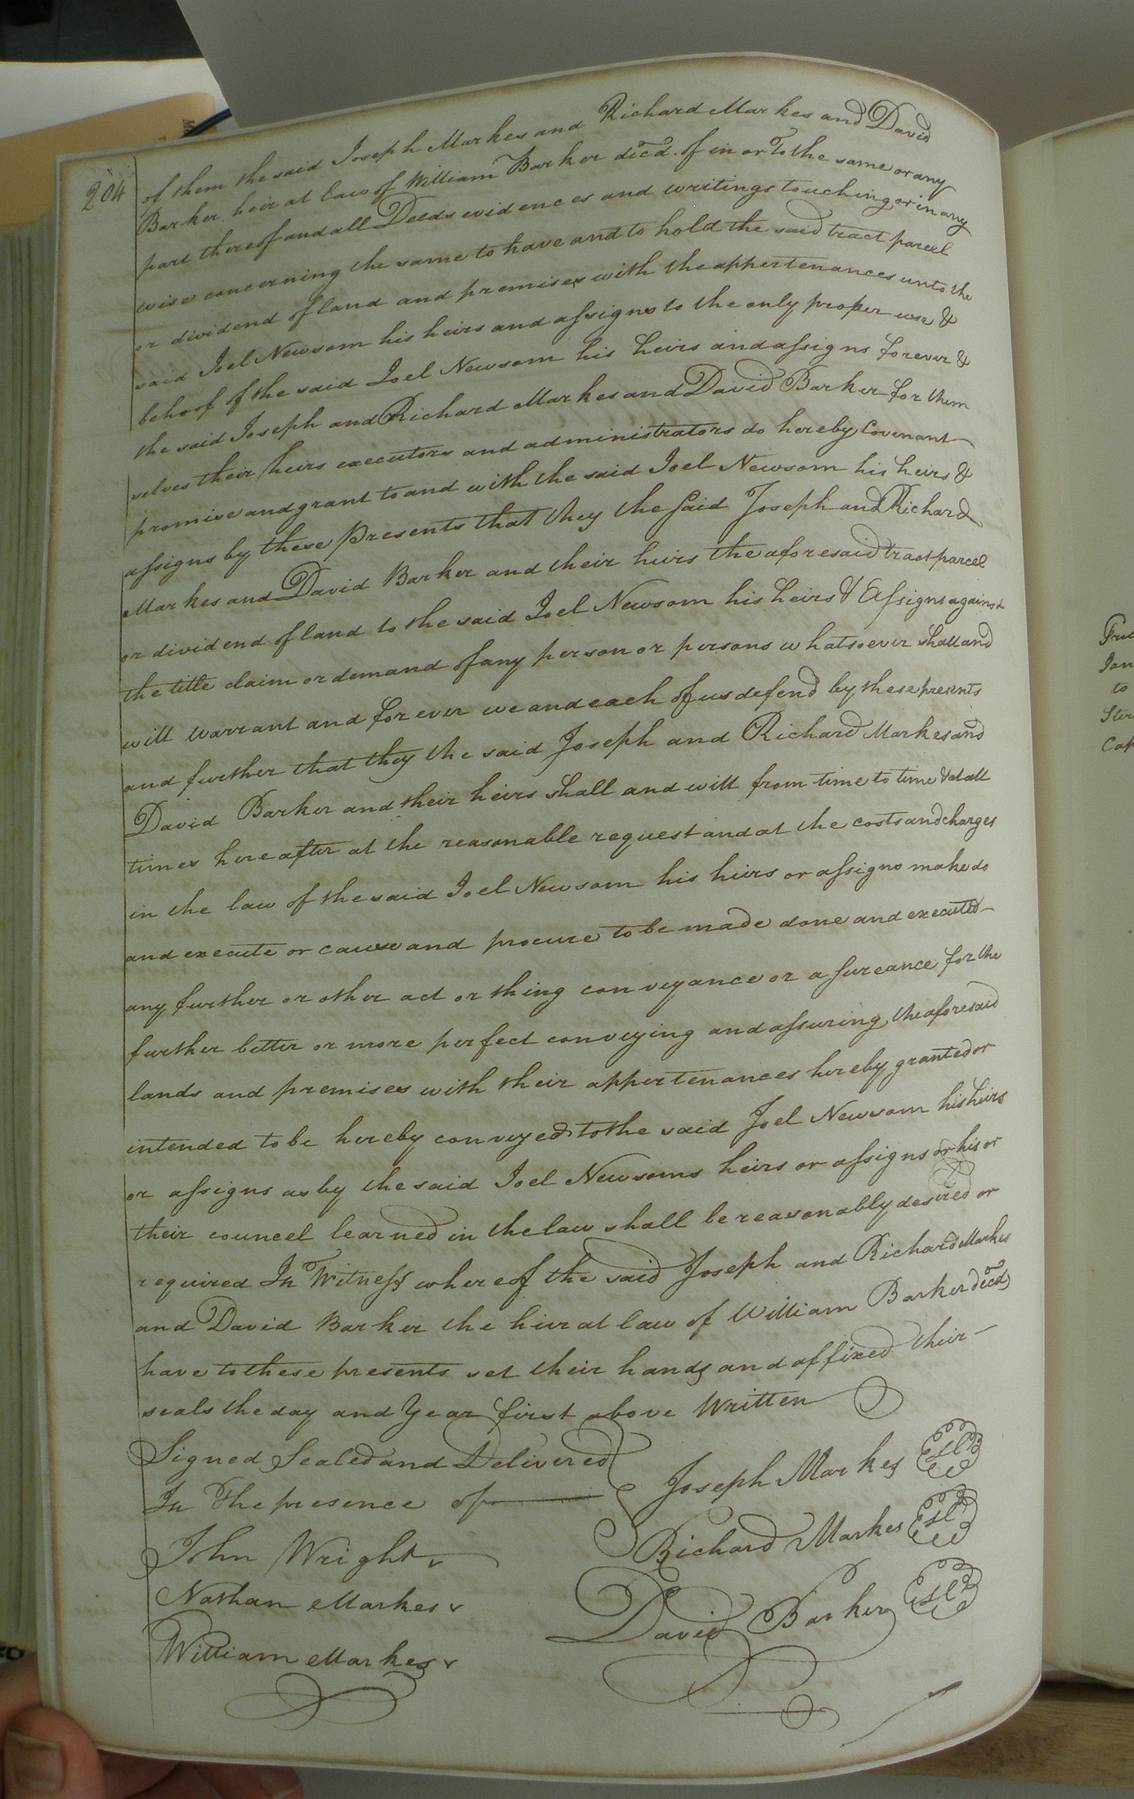 204
of them the said Joseph Markes and Richard Markes and David
Barker heir at law of William Barker decd. of in or To the same or any
part thereof and all Deeds evidences and writings touching or in any
wise concerning the same to have and to hold the said tract parcel
or dividend of land and premises with the appertenances unto the
said Joel Newsom his heirs and assigns to the only proper use &
behoof of the said Joel Newsom his heirs and assigns forever &
the said Joseph and Richard Markes and David Barker for them
selves their heirs executors and administrators do hereby Covenant
promise and grant to and with the said Joel Newsom his heirs &
assigns by these presents that they the said Joseph and Richard
Markes and David Barker and their heirs the aforesaid tract parcel
or dividend of land to the said Joel Newsom his heirs & Assigns against
the title claim or demand of any person or persons whatsoever shall and
will warrant and forever we and each of us defend by these presents
and further that they the said Joseph and Richard Markes and
David Barker and their heirs shall and will from time to time & at all
times hereafter at the reasonable request and at the costs and charges
in the law of the said Joel Newsom his heirs or assigns make do
and execute or cause and procure to be made done and executed
any further or other act or thing conveyance or assureance for the
further better or more perfect conveying and assuring the aforesaid
lands and premises with their appertenances hereby granted or
intended to be hereby conveyed to the said Joel Newsom his heirs
or assigns as by the said Joel Newsoms heirs or assigns or his or
their councel learned in the law shall be reasonably desired or
required In Witness whereof the said Joseph and Richard Markes
and David Barker the heir at law of William Barker decd
have to these presents set their hands and affixed their
seals the day and Year first above Written
Signed Sealed and Delivered
In The presence of
Joseph Markes
Richard Markes
David Barker
John Wright
Nathan Markes
William Markes
Jan
to